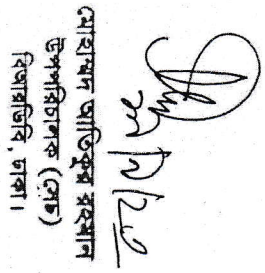 মোহাম্মদ আতিকুর রহমান
উপপরিচালক (সেচ)
বিআরডিবি, ঢাকা।